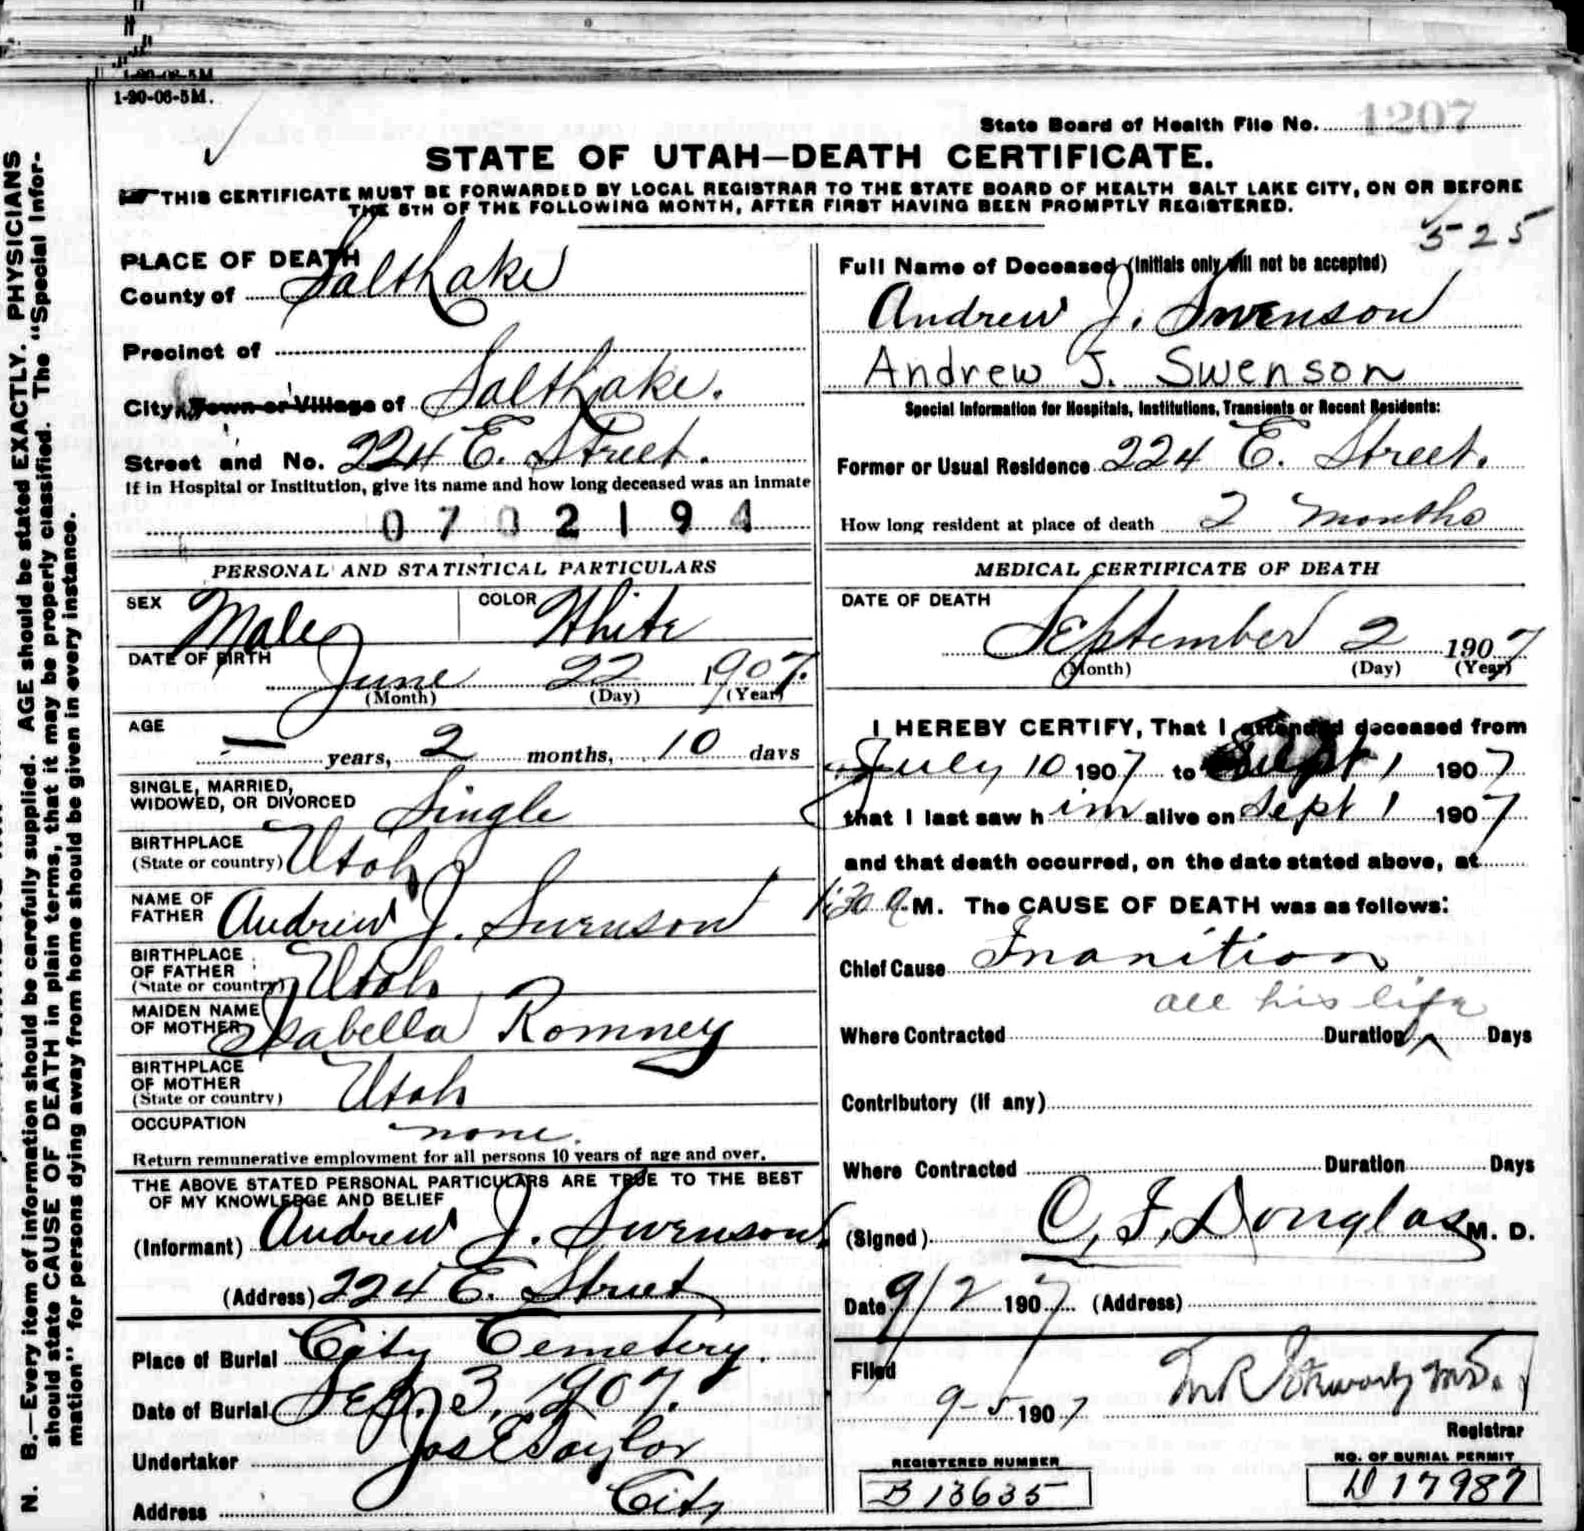 1-20-06-5M.
State Board of Health File No. 1207
STATE OF UTAH—DEATH CERTIFICATE.
THIS CERTIFICATE MUST BE FORWARDED BY LOCAL REGISTRAR TO THE STATE BOARD OF HEALTH SALT LAKE CITY, ON OR BEFORE
THE 5TH OF THE FOLLOWING MONTH, AFTER FIRST HAVING BEEN PROMPTLY REGISTERED.
525
PLACE OF DEATH
County of Salt Lake
Precinct of
City, Town or Village of Salt Lake.
Street and No. 224 E. Street.
If in Hospital or Institution, give its name and how long deceased was an Inmate
0702194
Full Name of Deceased (Initials only will not be accepted)
Andrew J. Swenson
Andrew J. Swenson
Special Information for Hospitals, Institutions, Transients or Recent Residents:
Former or Usual Residence 224 E. Street.
How long resident at place of death 2 Months
PERSONAL AND STATISTICAL PARTICULARS
SEX Male COLOR White
DATE OF BIRTH
June 22 1907.
(Month) (Day) (Year)
AGE
— years, 2 months, 10 days
SINGLE, MARRIED,
WIDOWED, OR DIVORCED Single
BIRTHPLACE
(State or country) Utah
NAME OF
FATHER Andrew J. Swenson
BIRTHPLACE
OF FATHER
(State or country) Utah
MAIDEN NAME
OF MOTHER Isabella Romney
BIRTHPLACE
OF MOTHER
(State or country) Utah
OCCUPATION none.
Return remunerative employment for all persons 10 years of age and over.
THE ABOVE STATED PERSONAL PARTICULARS ARE TRUE TO THE BEST
OF MY KNOWLEDGE AND BELIEF
(Informant) Andrew J. Swenson.
(Address) 224 E. Street
Place of Burial City Cemetery.
Date of Burial Sep. 3, 1907.
Undertaker Jos E Taylor
Address City
MEDICAL CERTIFICATE OF DEATH
DATE OF DEATH
September 2 1907
(Month) (Day) (Year)
I HEREBY CERTIFY, That I attended deceased from
July 10 1907 to Sept 1 1907
that I last saw him alive on Sept 1 1907
and that death occurred, on the date stated above, at
1:30 A.M. The CAUSE OF DEATH was as follows:
Chief Cause Inanition
all his life
Where Contracted Duration Days
Contributory (if any)
Where Contracted Duration Days
(Signed) C. F. Douglas M. D.
Date 9/2 1907 (Address)
Filed
9-5 1907
Registrar
REGISTERED NUMBER
B 13635
NO. OF BURIAL PERMIT
D 17987
N. B.—Every item of information should be carefully supplied. AGE should be stated EXACTLY. PHYSICIANS
should state CAUSE OF DEATH in plain terms, that it may be properly classified. The "Special Infor-
mation" for persons dying away from home should be given in every instance.